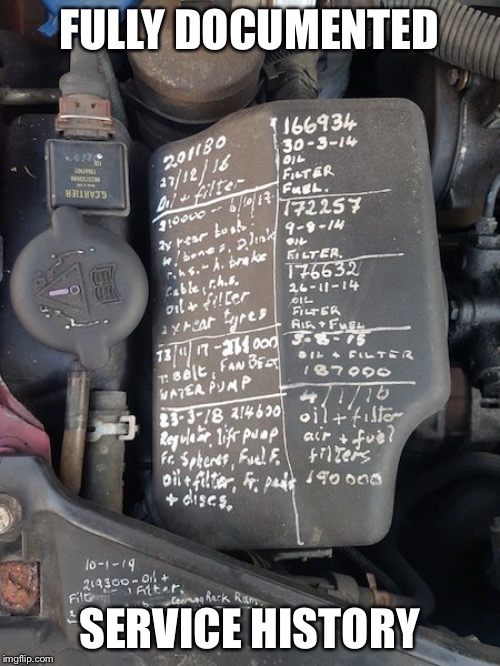 FULLY DOCUMENTED
G.CARTIER
166934
30-3-14
OIL
FILTER
FUEL.
172257
9-9-14
OIL
FILTER.
176632
26-11-14
OIL
FILTER
AIR + FUEL
3-8-15
OIL + FILTER
187000
4/1/16
oil + filter
air + fuel
filters
190000
201180
27/12/16
Oil + filter
210000 -
2x rear
brake
cable, r.h.s.
oil + filter
2 x rear tyres
13/11/17 - 000
T. Belt, FAN BELT
WATER PUMP
23-3-18 214600
Regulator, lift pump
Fr. Spheres, Fuel F.
oil + filter, Fr. pads
+ discs.
10-1-19
219300 - Oil +
Filter.
Rack
SERVICE HISTORY
imgflip.com